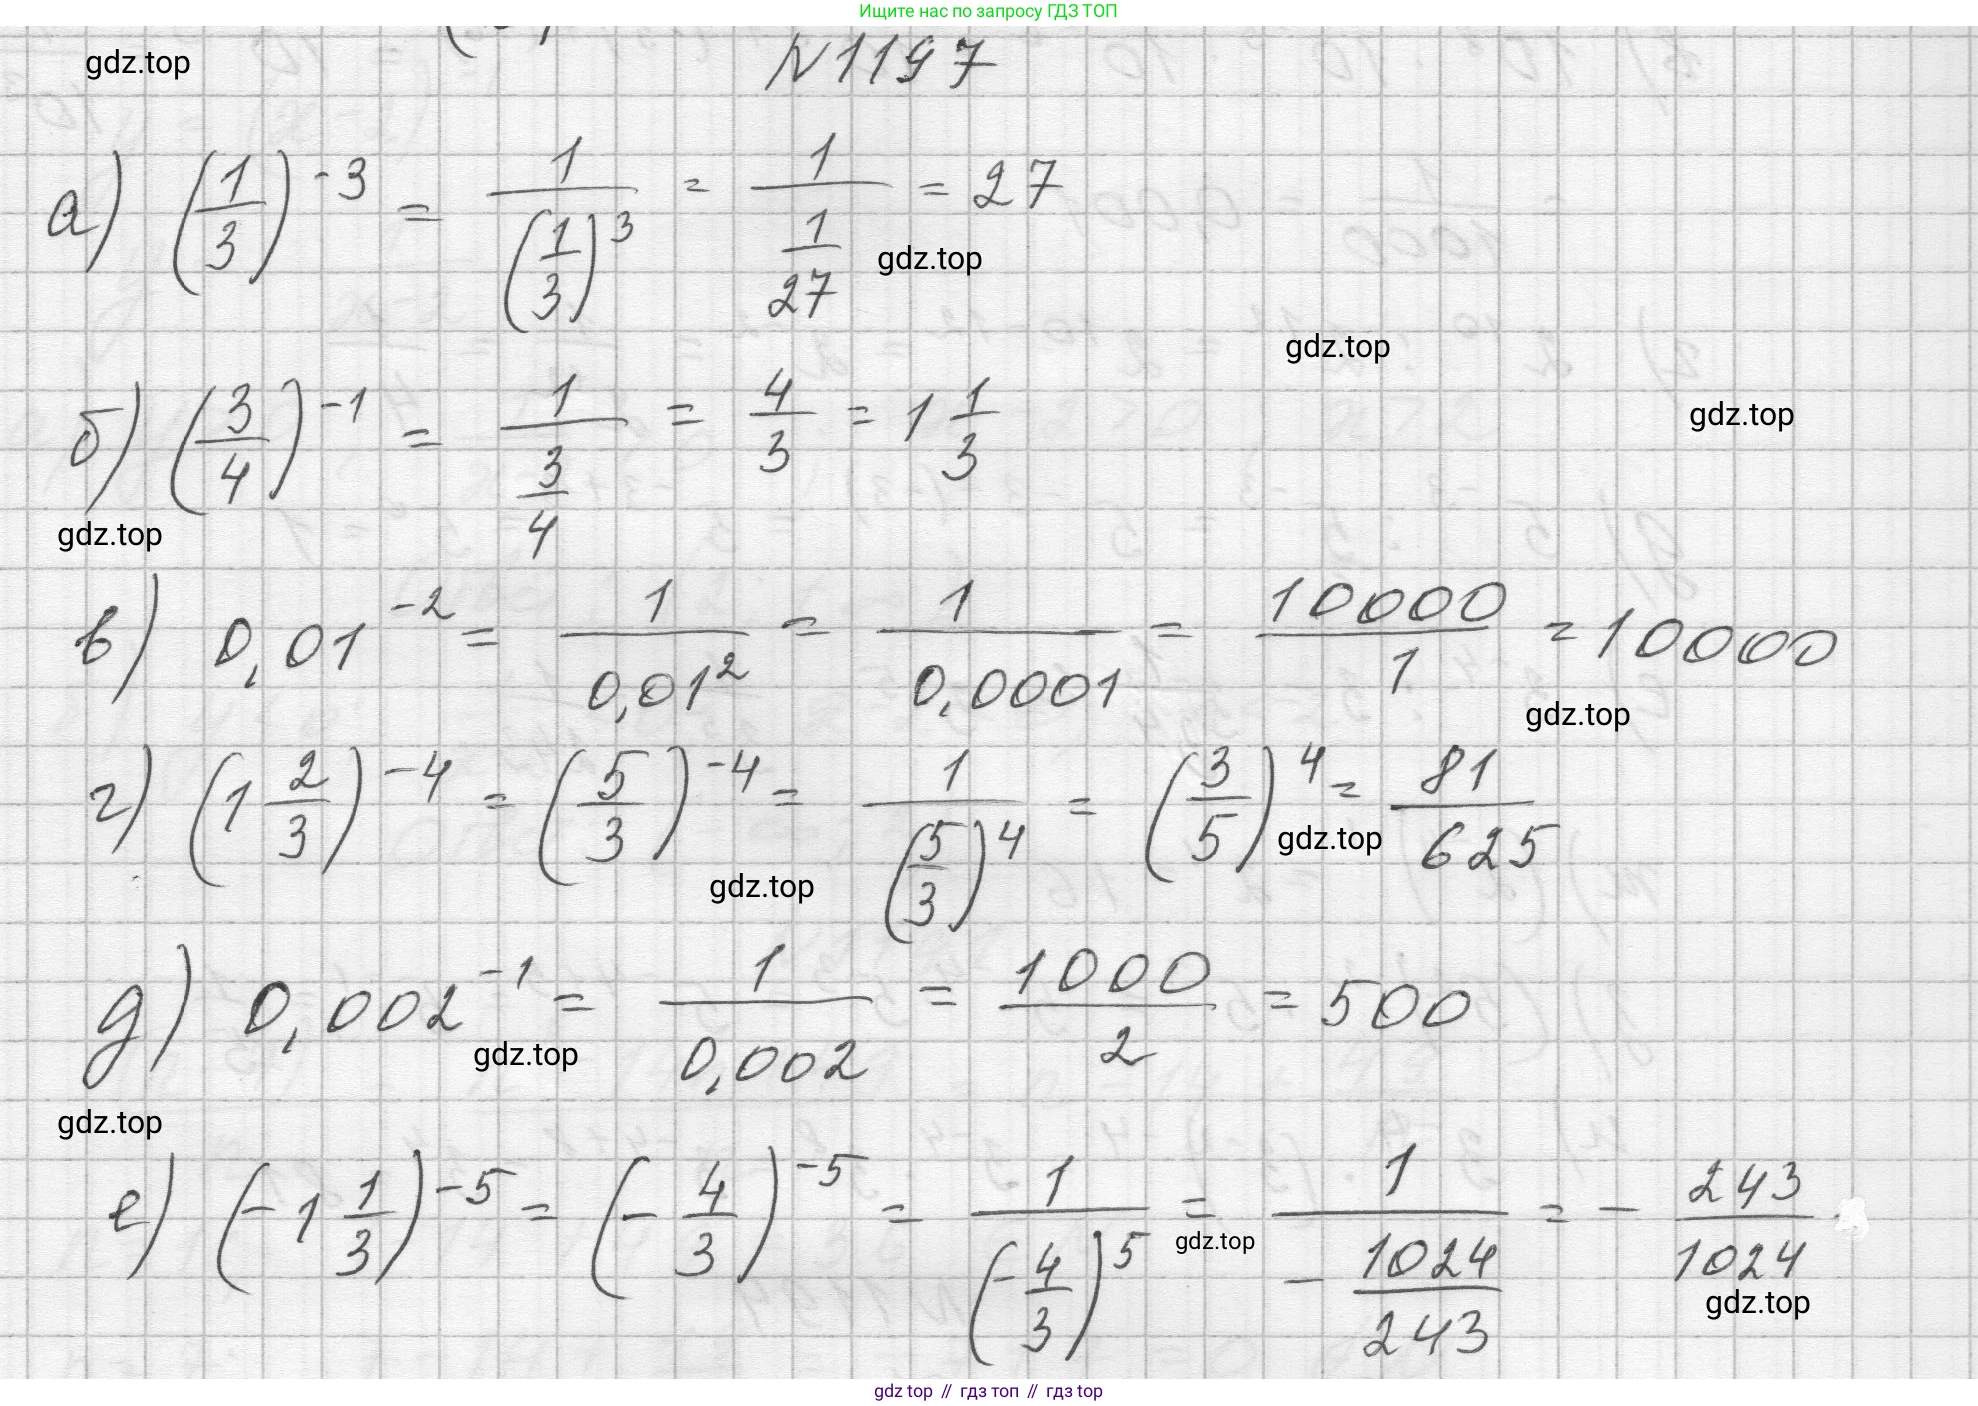 Ищите нас по запросу ГДЗ ТОП
gdz.top
N1197
а) (1/3)^-3 = 1/(1/3)^3 = 1/(1/27) = 27
gdz.top
gdz.top
б) (3/4)^-1 = 1/(3/4) = 4/3 = 1 1/3
gdz.top
gdz.top
в) 0,01^-2 = 1/0,01^2 = 1/0,0001 = 10000/1 = 10000
gdz.top
г) (1 2/3)^-4 = (5/3)^-4 = 1/(5/3)^4 = (3/5)^4 = 81/625
gdz.top
gdz.top
д) 0,002^-1 = 1/0,002 = 1000/2 = 500
gdz.top
gdz.top
е) (-1 1/3)^-5 = (-4/3)^-5 = 1/(-4/3)^5 = 1/(-1024/243) = -243/1024
gdz.top
gdz.top
gdz top // гдз топ // гдз top